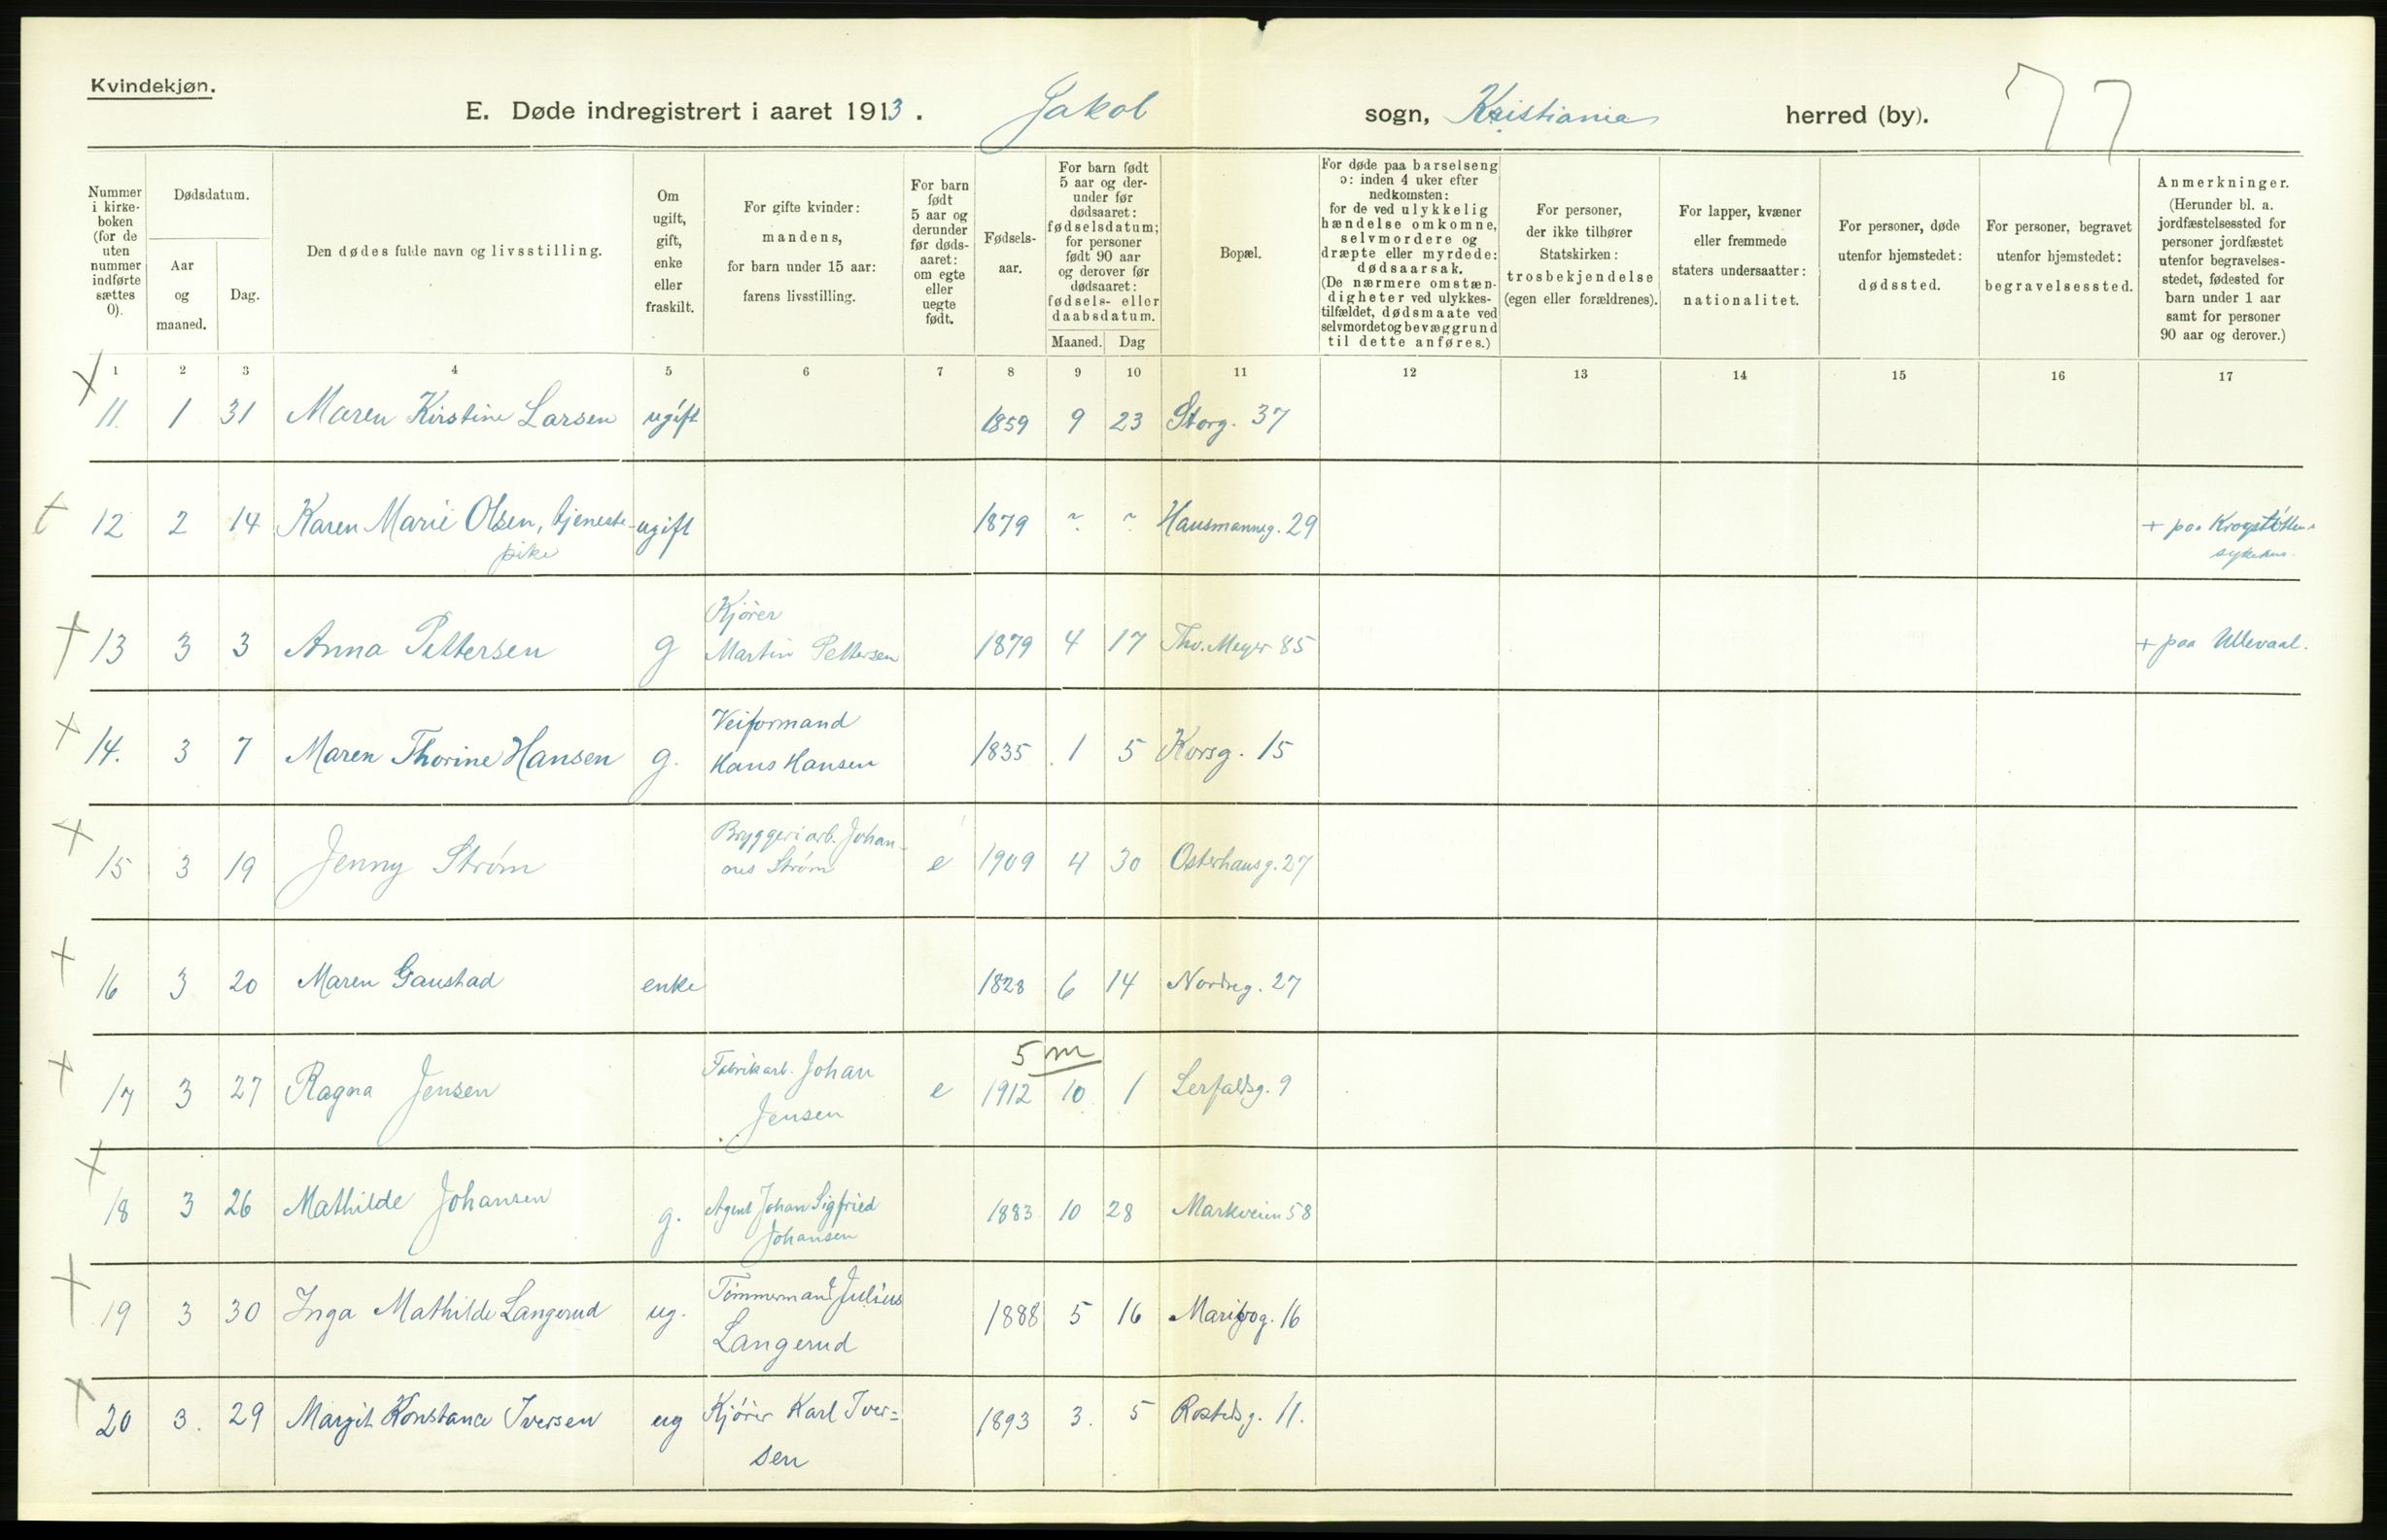 Kvindekjøn.
E. Døde indregistrert i aaret 1913. Jakob sogn, Kristiania herred (by). 77
Nummer i kirke-boken (for de uten nummer indførte sættes 0).
Dødsdatum.
Aar og maaned.
Dag.
Den dødes fulde navn og livsstilling.
Om ugift, gift, enke eller fraskilt.
For gifte kvinder: mandens, for barn under 15 aar: farens livsstilling.
For barn født 5 aar og derunder før døds-aaret: om egte eller uegte født.
Fødsels-aar.
For barn født 5 aar og der-under før dødsaaret: fødselsdatum; for personer født 90 aar og derover før dødsaaret: fødsels- eller daabsdatum.
Maaned. Dag
Bopæl.
For døde paa barselseng ɔ: inden 4 uker efter nedkomsten: for de ved ulykkelig hændelse omkomne, selvmordere og dræpte eller myrdede: dødsaarsak. (De nærmere omstæn-digheter ved ulykkes-tilfældet, dødsmaate ved selvmordet og bevæggrund til dette anføres.)
For personer, der ikke tilhører Statskirken: trosbekjendelse (egen eller forældrenes).
For lapper, kvæner eller fremmede staters undersaatter: nationalitet.
For personer, døde utenfor hjemstedet: dødssted.
For personer, begravet utenfor hjemstedet: begravelsessted.
Anmerkninger. (Herunder bl. a. jordfæstelsessted for personer jordfæstet utenfor begravelses-stedet, fødested for barn under 1 aar samt for personer 90 aar og derover.)
1 2 3 4 5 6 7 8 9 10 11 12 13 14 15 16 17
11. 1 31 Maren Kirstine Larsen ugift 1859 9 23 Storg. 37
12 2 14 Karen Marie Olsen, tjeneste- ugift 1879 ~ ~ Hausmannsg. 29 + paa
pike
Kjører
13 3 3 Anna Pettersen g Martin Pettersen 1879 4 17 Thv. Meyer 85 + paa Ullevaal.
Veiformand
14. 3 7 Maren Thorine Hansen g. Hans Hansen 1835 1 5 Korsg. 15
Bryggeriarb. Johan-
15 3 19 Jenny Strøm nes Strøm e 1909 4 30 Osterhausg. 27
16 3 20 Maren Gaustad enke 1828 6 14 Nordreg. 27
5 m
17 3 27 Ragna Jensen Fabrikarb. Johan e 1912 10 1 Lerfaldsg. 9
Jensen
18 3 26 Mathilde Johansen g. Agent Johan Sigfried 1883 10 28 Markveien 58
Johansen
19 3 30 Inga Mathilde Langerud ug. Tømmermand Julius 1888 5 16 Maribog. 16
Langerud
20 3. 29 Margit Konstance Iversen ug Kjører Karl Iver= 1893 3. 5 Rostedsg. 11.
sen